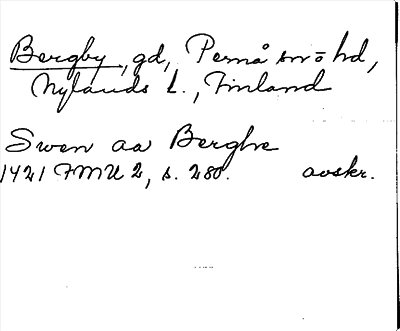 Bergby, gd, Pernå sn o hd,
Nylands l., Finland
Swen aa Berghe
1421 FMU 2, s. 280. avskr.